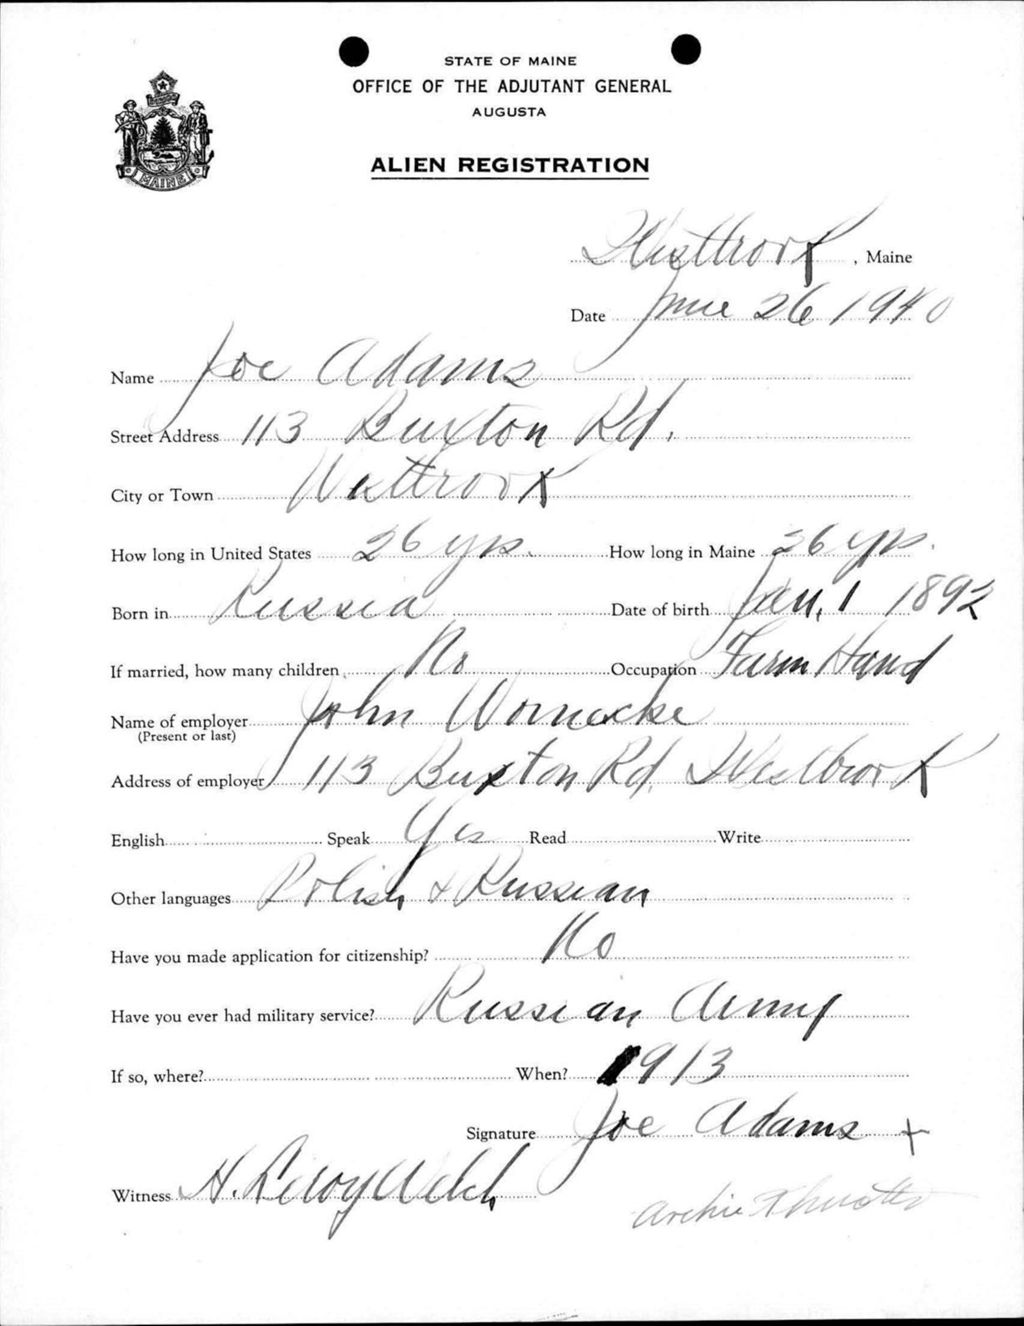 STATE OF MAINE
OFFICE OF THE ADJUTANT GENERAL
AUGUSTA
MAINE
ALIEN REGISTRATION
Westbrook, Maine
Date June 26 1940
Name Joe Adams
Street Address 113 Buxton Rd.
City or Town Westbrook
How long in United States 26 yrs. How long in Maine 26 yrs.
Born in Russia Date of birth Jan. 1 1892
If married, how many children No Occupation Farm Hand
Name of employer John Wornecke
(Present or last)
Address of employer 113 Buxton Rd. Westbrook
English Speak Yes Read Write
Other languages Polish & Russian
Have you made application for citizenship? No
Have you ever had military service? Russian Army
If so, where? When? 1913
Signature Joe Adams +
Witness H. Leroy Welch
Archie